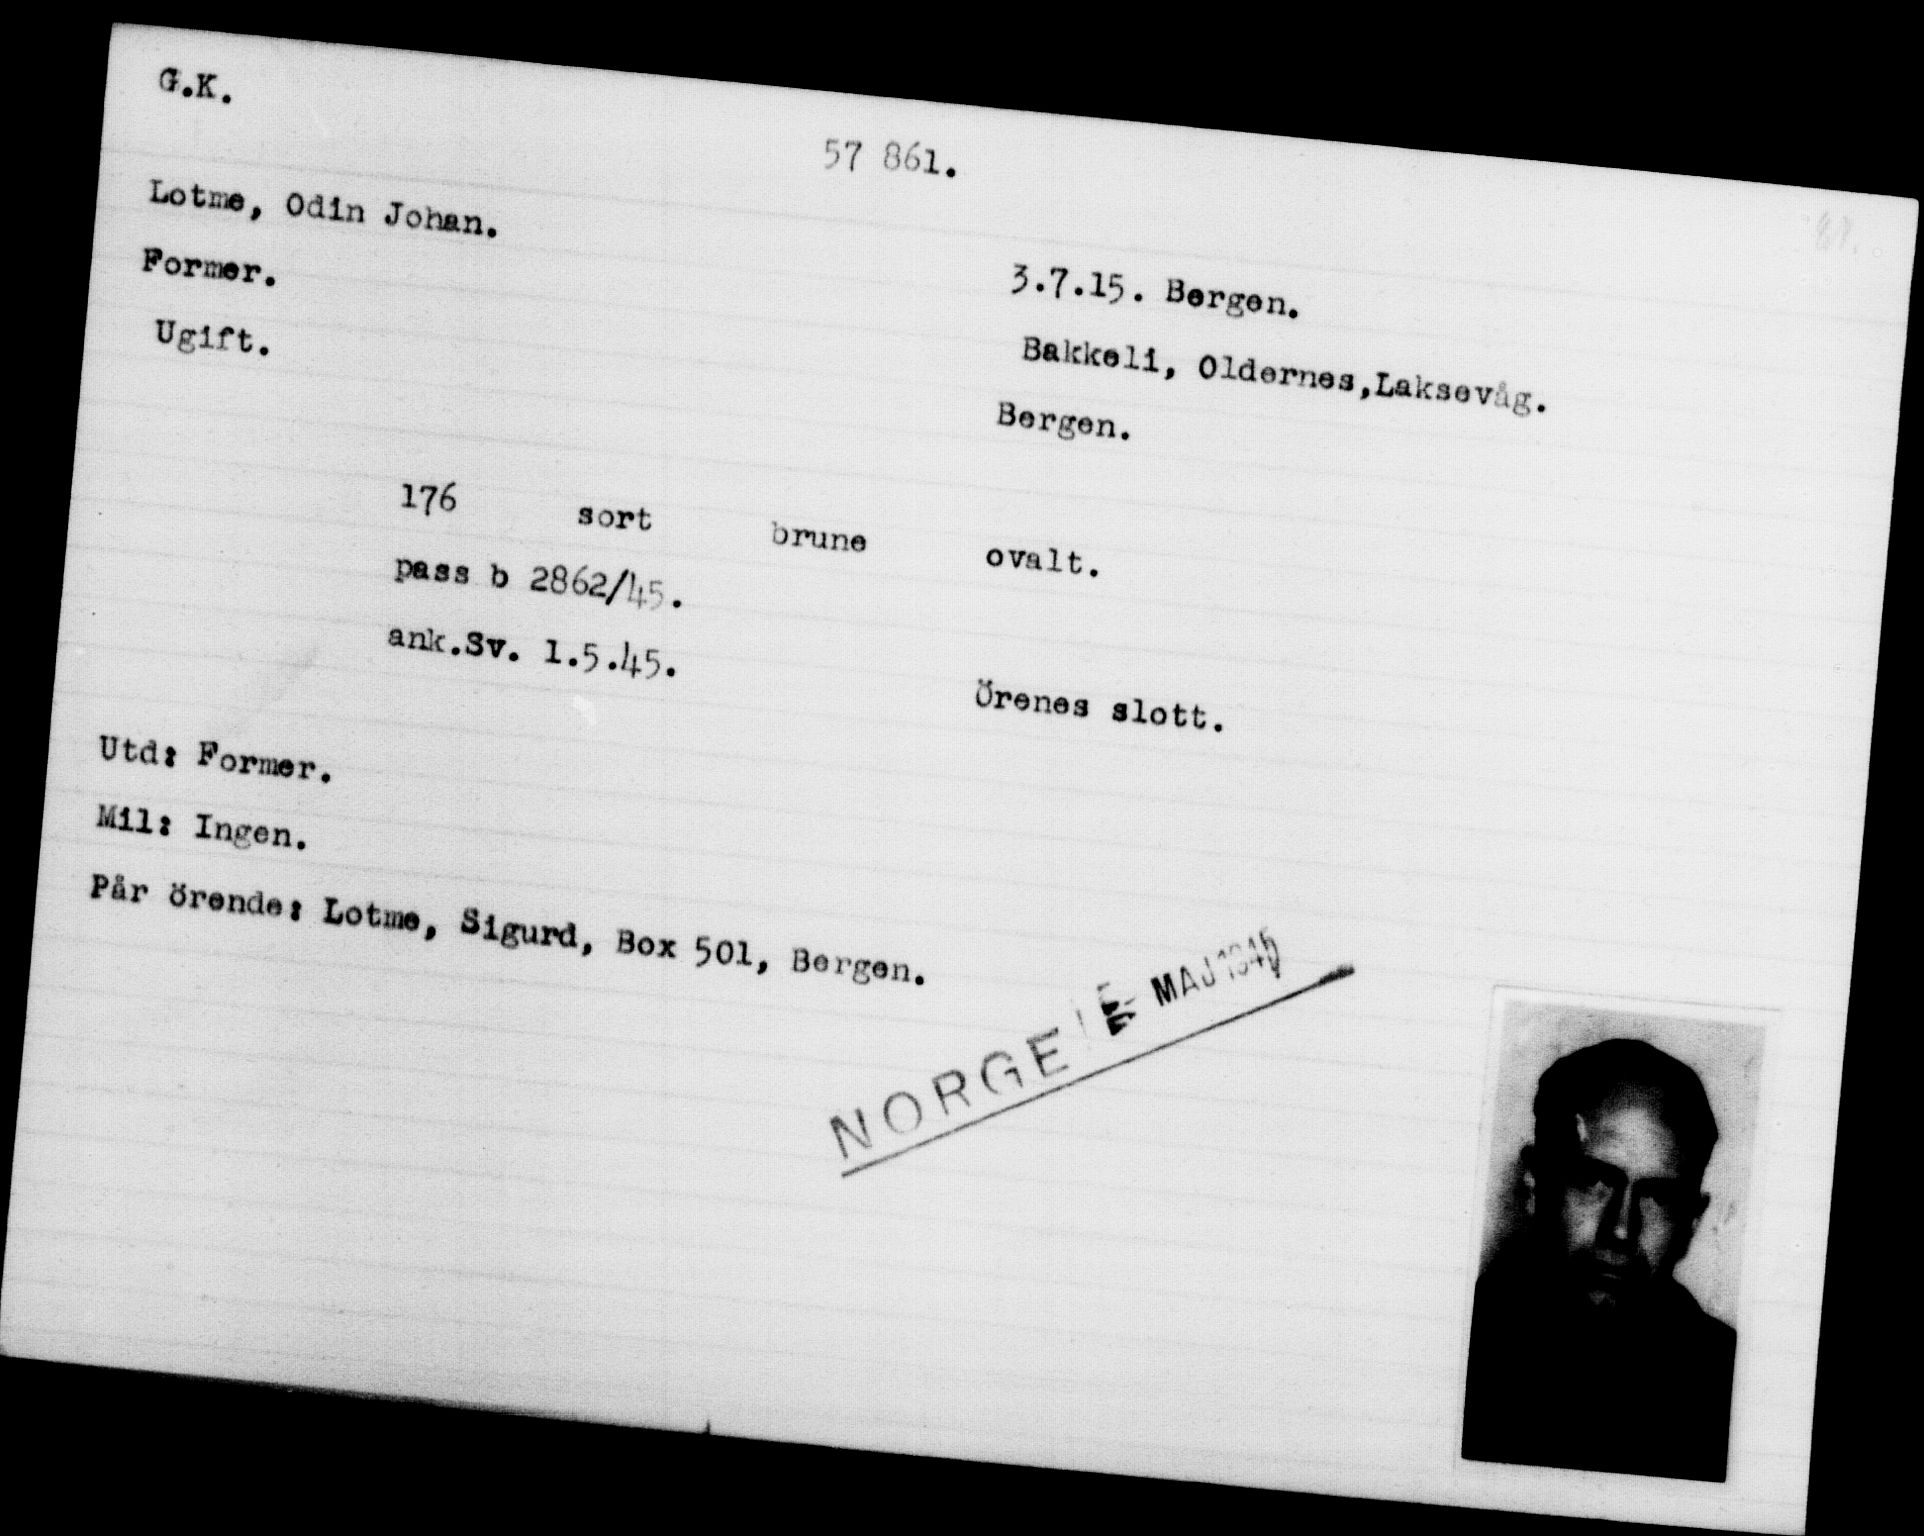 G.K.
57 861.
Lotme, Odin Johan.
3.7.15. Bergen.
Former.
Bakkeli, Oldernes,Laksevåg.
Ugift.
Bergen.
176 sort brune ovalt.
pass b 2862/45.
ank.Sv. 1.5.45.
Örenes slott.
Utd: Former.
Mil: Ingen.
Pår örende: Lotme, Sigurd, Box 501, Bergen.
NORGE MAJ 1945